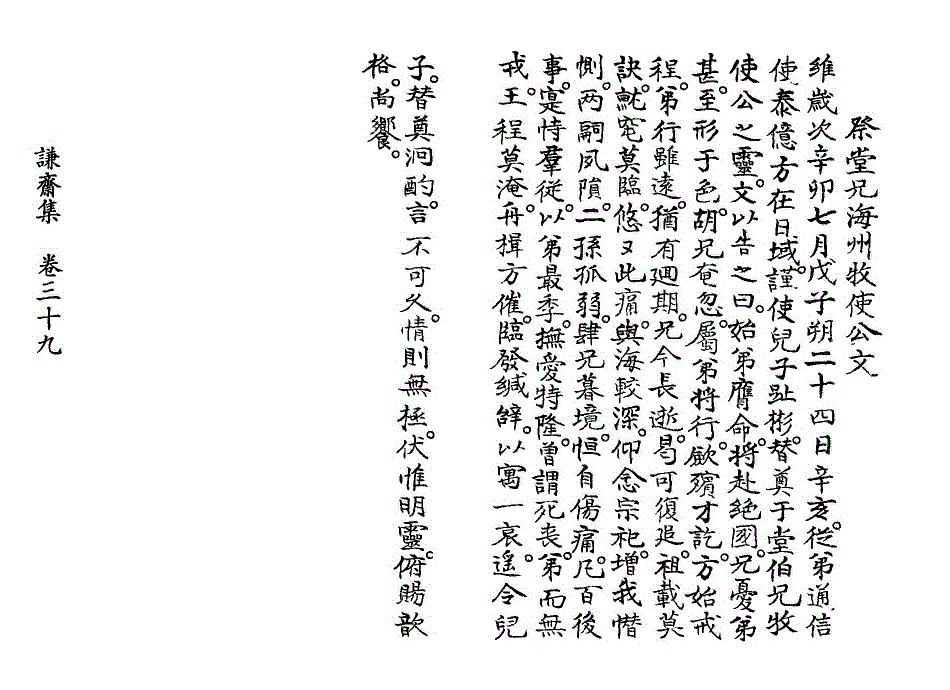 祭堂兄海州牧使公文
維歲次辛卯七月戊子朔二十四日辛亥。從弟通信
使泰億方在日域。謹使兒子趾彬。替奠于堂伯兄牧
使公之靈。文以告之曰。始弟膺命。將赴絶國。兄憂弟
甚。至形于色。胡兄奄忽。屬弟將行。歛殯才訖。方始戒
程。弟行雖遠。猶有廻期。兄今長逝。曷可復追。祖載莫
訣。鯎窆莫臨。悠又此痛。與海較深。仰念宗祀。增我憯
惻。两嗣夙隕。二孫孤弱。肆兄暮境。恒自傷痛。凡百後
事。寔恃羣從。以弟最季。撫愛特隆。曾謂死丧。弟而無
戎。王程莫淹。舟揖方催。臨發緘辭。以寓一哀。遙令兒
子。替奠泂酌。言不可久。情則無極。伏惟明靈。俯賜歆
格。尚饗。
謙齋集　卷三十九